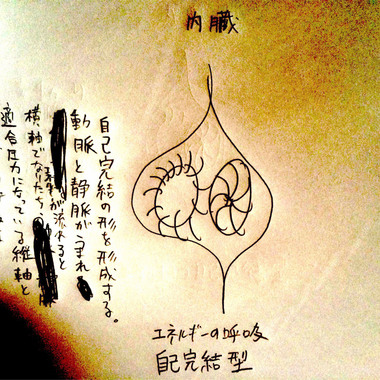 内臓
適合圧力になっている縦軸と
横軸でなりたち、
が流れると
動脈と静脈がうまれ
自己完結の形を形成する。
エネルギーの呼吸
自己完結型